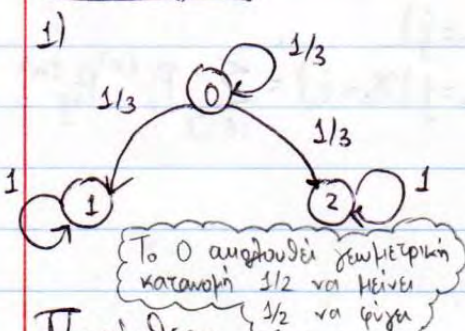 1)
1/3
0
1/3
1/3
1
1
2
1
Το 0 ακολουθεί γεωμετρική
κατανομή 1/2 να μείνει
1/2 να φύγει